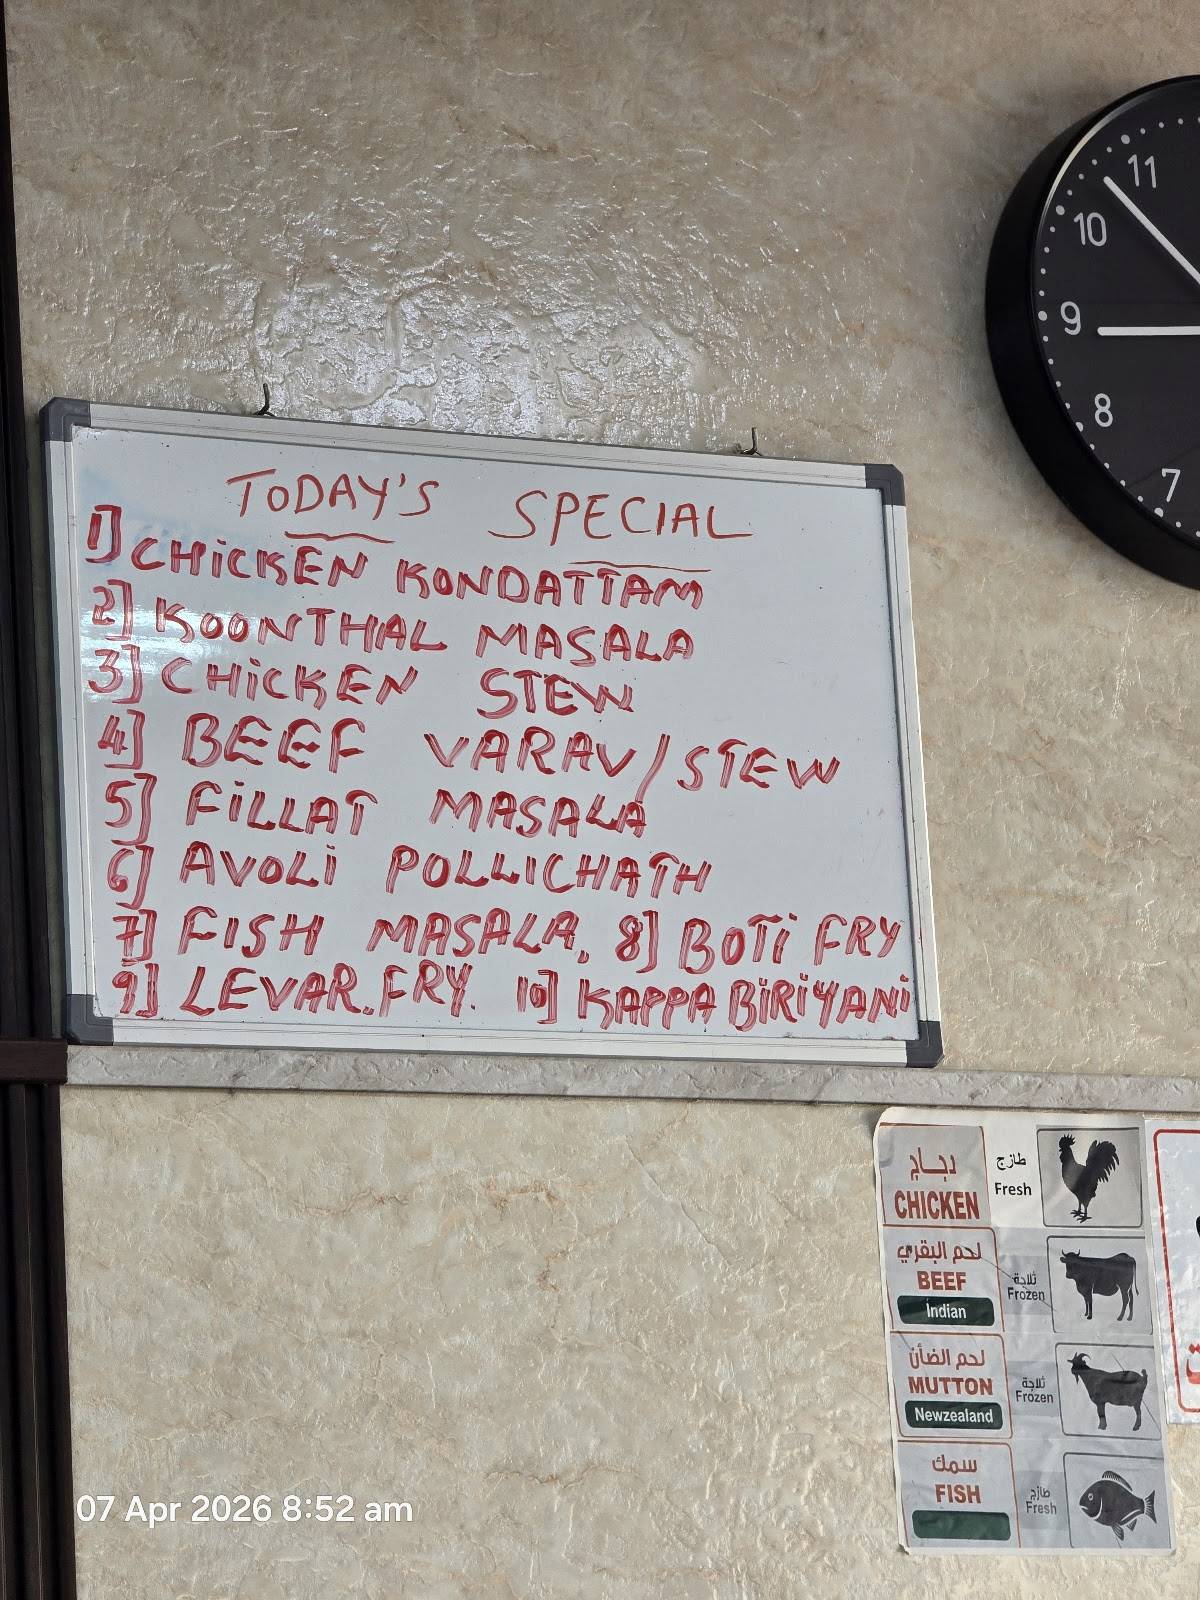 TODAY'S SPECIAL
1] CHiCKEN KONDATTAM
2] KOONTHAL MASALA
3] CHiCKEN STEW
4] BEEF VARAV/STEW
5] FiLLAT MASALA
6] AVOLi POLLICHATH
7] FISH MASALA. 8] BOTi FRY
9] LEVAR.FRY. 10] KAPPA BiRiYANi
11
10
9
8
7
دجاج
CHICKEN
طازج
Fresh
لحم البقري
BEEF
Indian
ثلاجة
Frozen
لحم الضأن
MUTTON
Newzealand
ثلاجة
Frozen
سمك
FISH
طازج
Fresh
07 Apr 2026 8:52 am